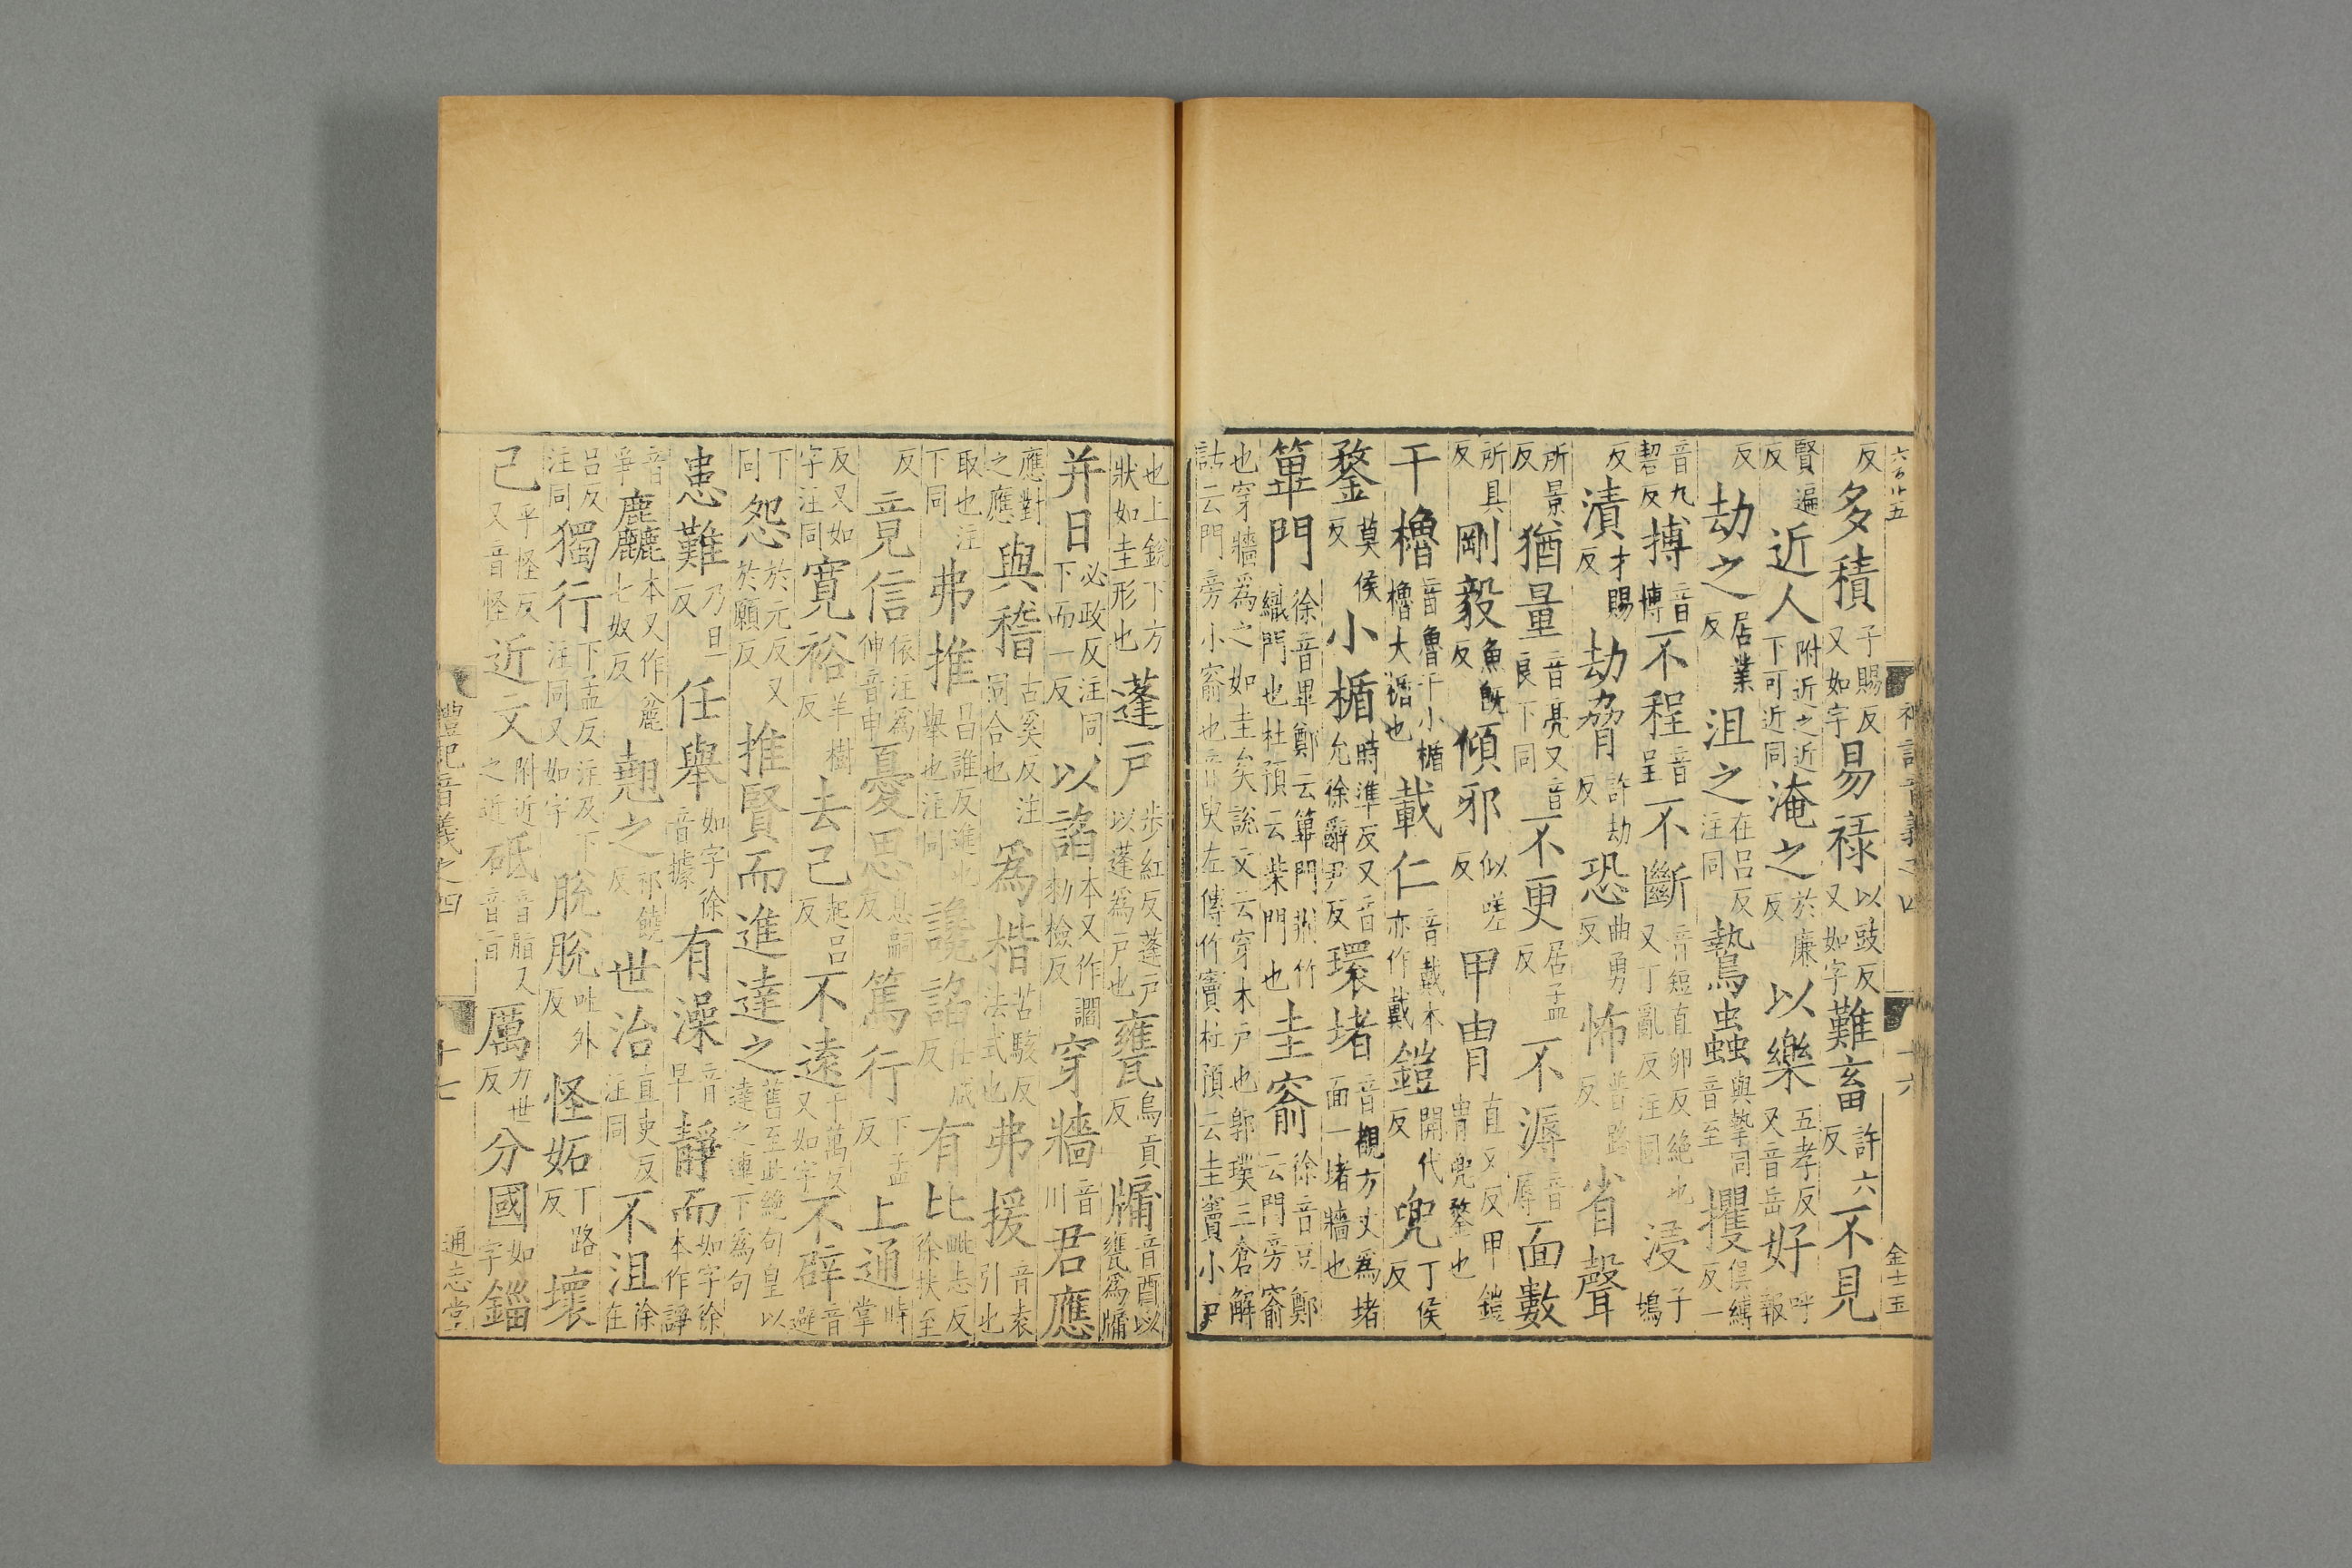 六百廾五 禮記音義之四 十六 金士玉
反多積子賜反又如字易祿以豉反又如字難畜許六反不見
賢遍反近人附近之近下可近同淹之於廉反以樂五孝反又音岳好呼報
反劫之居業反沮之在呂反注同鷙蟲與摯同音至攫俱縛反一
音九碧反搏音博不程音呈不斷音短直卵反絶也又丁亂反注同浸子鴆
反漬才賜反劫脅許劫反恐曲勇反怖普路反省聲
所景反猶量音亮又音良下同不更居孟反不溽音辱面數
所具反剛毅魚旣反傾邪似嗟反甲冑直又反甲鎧冑兜鍪也
干櫓音魯干小楯櫓大楯也載仁音戴本亦作戴鎧開代反兜丁侯反
鍪莫侯反小楯時準反又音允徐辭尹反環堵音覩方丈爲堵面一堵牆也
篳門徐音畢鄭云篳門荊竹織門也杜預云柴門也圭窬徐音豆鄭云門旁窬
也穿牆爲之如圭矣說文云穿木戶也郭璞三倉解詁云門旁小窬也音臾左傳作竇杜預云圭竇小戶
也上銳下方狀如圭形也蓬戶步紅反蓬戶以蓬爲戶也甕烏貢反牖音酉以甕爲牖
并日必政反注同下而一反以諂本又作讇勑檢反穿牆音川君應
應對之應與稽古奚反注同合也爲楷苦駭反法式也弗援音袁引也
取也注下同弗推昌誰反進也舉也注同讒諂仕咸反有比毗志反徐扶至
反竟信依注爲伸音申憂思息嗣反篤行下孟反上通時掌
反又如字注同寬裕羊樹反去己起呂反不遠于萬反又如字不辟音避
下同怨於元反又於願反推賢而進達之舊至此絶句皇以達之連下爲句
患難乃旦反任舉如字徐音據有澡音早靜而如字徐本作諍
音爭麤本又作麄七奴反翹之祁饒反世治直吏反注同不沮徐在
呂反注同獨行下孟反注及下注同又如字脫脫吐外反怪妬丁路反壞
己乎怪反又音怪近文附近之近砥音脂又音旨厲力世反分國如字錙
禮記音義之四 十七 通志堂